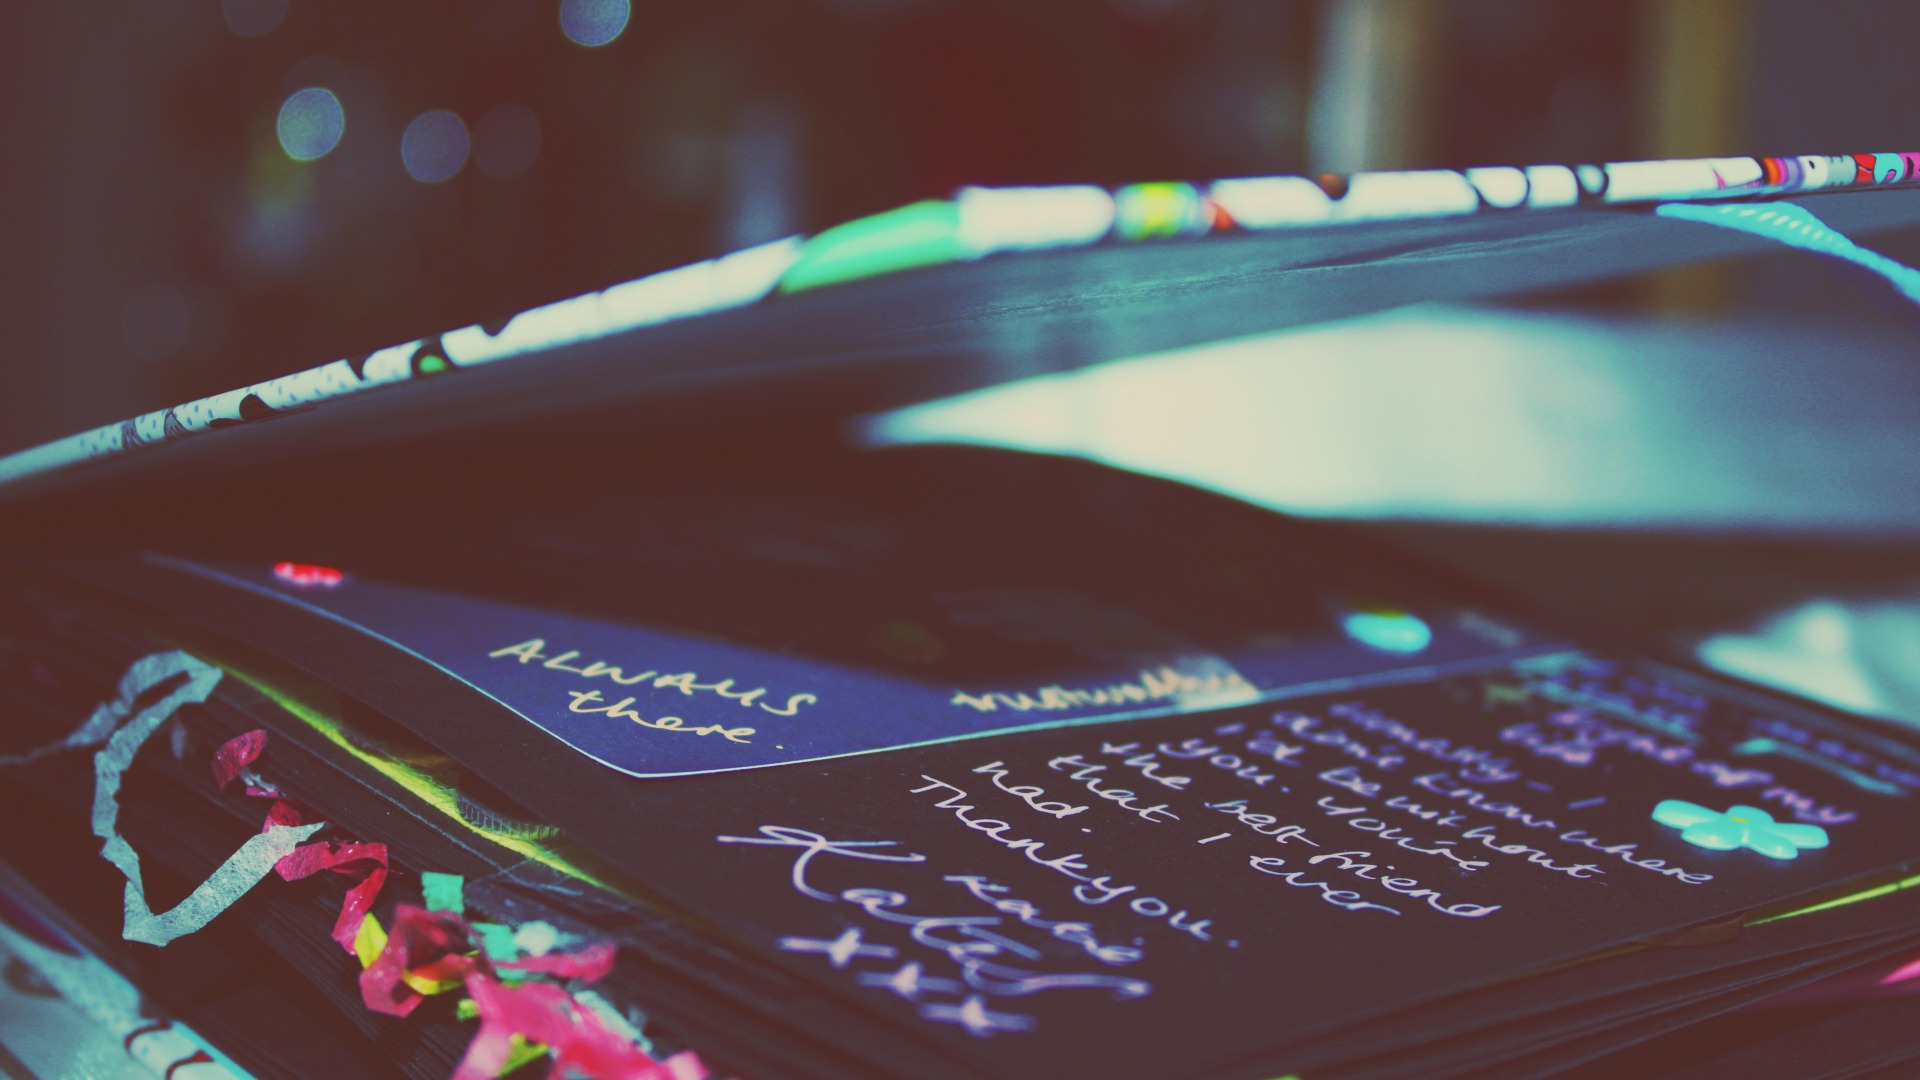 ALWAYS
there.
trustworthy
time of my
life.
Honestly - I
don't know where
I'd be without
you. You're
the best friend
that I ever
had.
Thankyou.
Katie
xxx